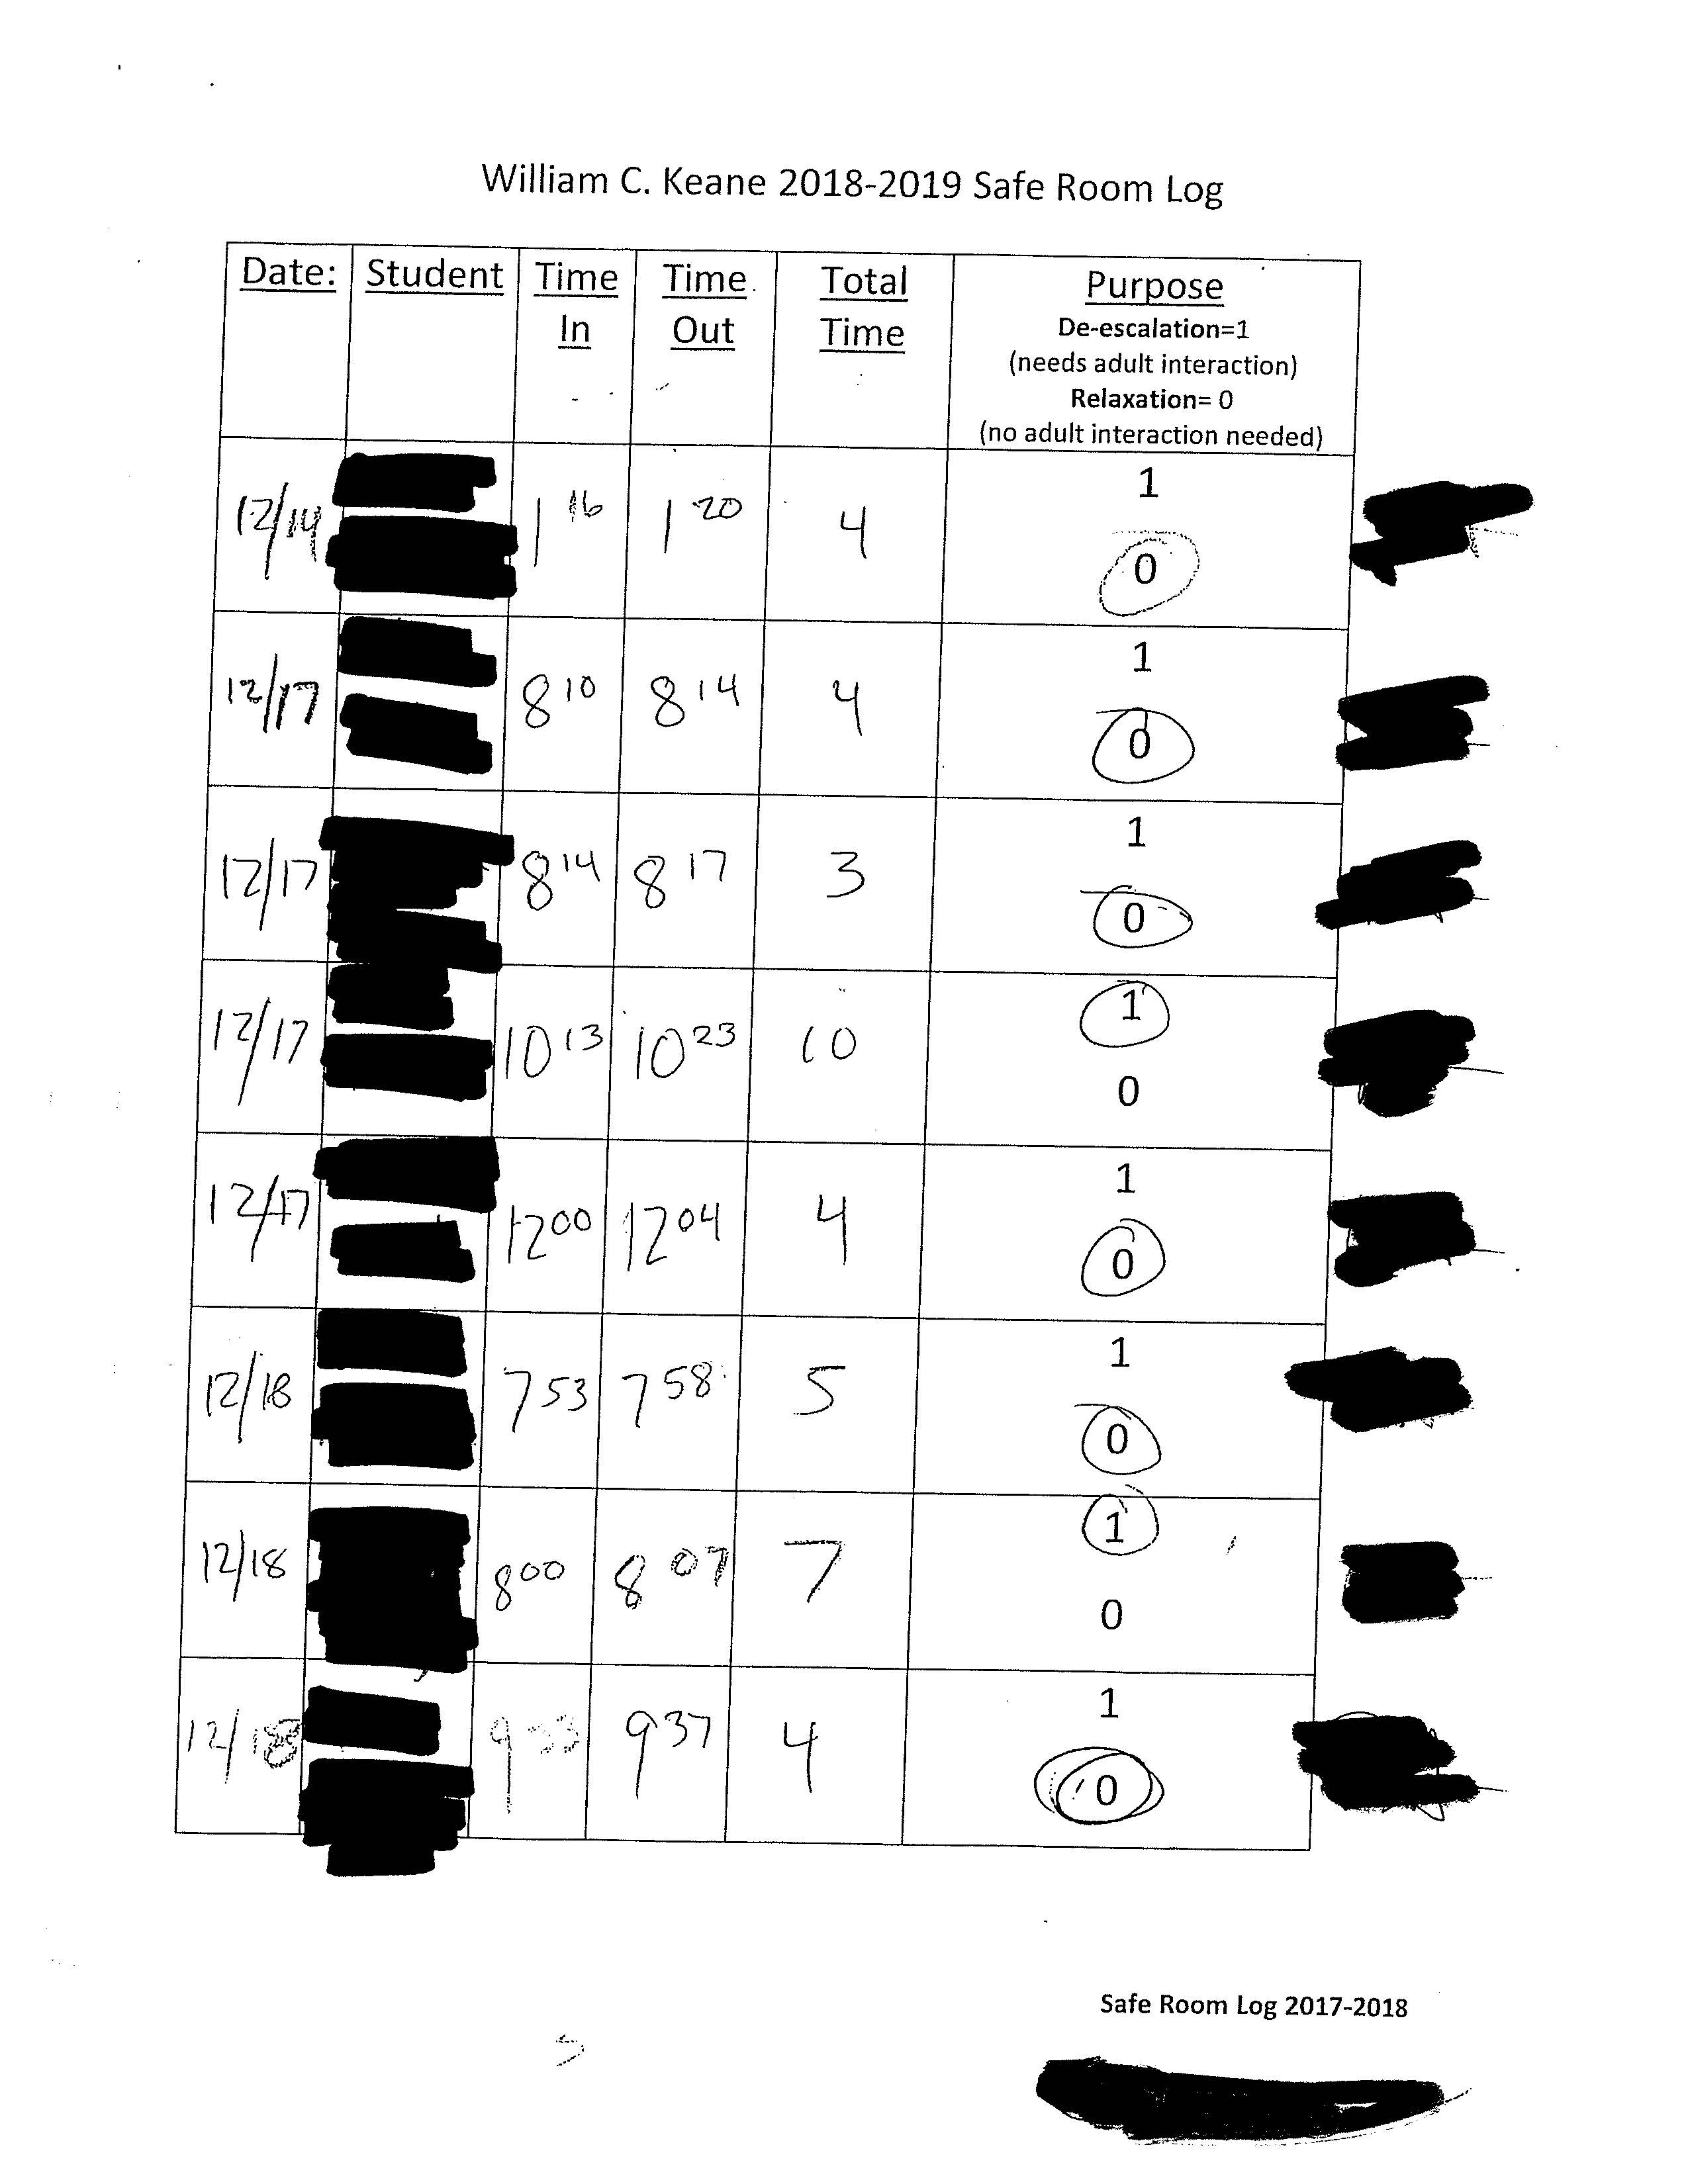 William C. Keane 2018-2019 Safe Room Log
Date: Student Time In Time Out Total Time Purpose
De-escalation=1
(needs adult interaction)
Relaxation= 0
(no adult interaction needed)
12/14 1 16 1 20 4 1 0
12/17 8 10 8 14 4 1 0
12/17 8 14 8 17 3 1 0
12/17 10 13 10 23 10 1 0
12/17 12 00 12 04 4 1 0
12/18 7 53 7 58 5 1 0
12/18 8 00 8 07 7 1 0
12/18 9 33 9 37 4 1 0
Safe Room Log 2017-2018